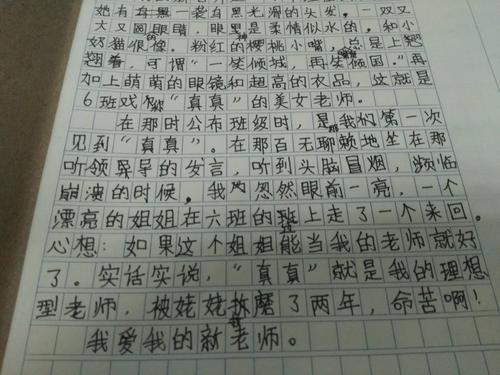 她有一袭乌黑光滑的头发。一双又
大又圆眼睛，眼里是柔情似水的。和小
奶猫很像。粉红的樱桃小嘴，总是上翘
翘着，可谓“一笑倾城，再笑倾国。”再
加上萌萌的眼镜和超高的衣品，这就是
6班戏称“真真”的美女老师。
在那时公布班级时，是我们第一次
见到“真真”。在那百无聊赖地坐在那
听领导的发言，听到头脑冒烟，濒临
崩溃的时候。我忽然眼前一亮，一个
漂亮的姐姐在六班的班上走了一个来回。
心想：如果这个姐姐能当我的老师就好
了。实话实说，“真真”就是我的理想
型老师，被姥姥折磨了两年，命苦啊！
我爱我的新老师。